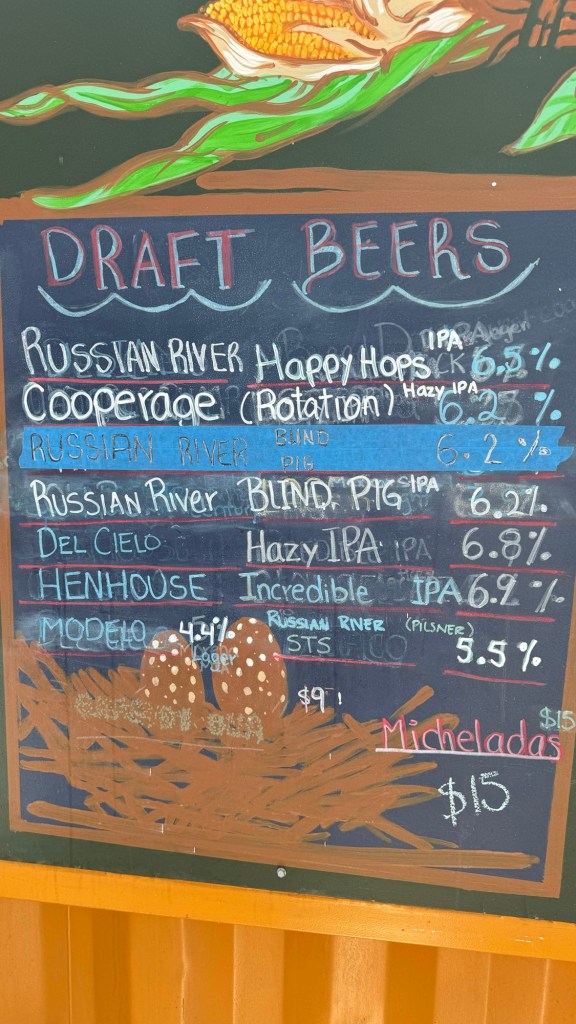 DRAFT BEERS
RUSSIAN RIVER Happy Hops IPA 6.5%
Cooperage (Rotation) Hazy IPA 6.2 %
RUSSIAN RIVER BLIND PIG 6.2%
RUSSIAN RIVER BLIND PIG IPA 6.2%
DEL CIELO Hazy IPA 6.8%
HENHOUSE Incredible IPA 6.9%
MODELO 4.4% Lager
RUSSIAN RIVER (PILSNER)
STS 5.5%
$9
$15
Micheladas
$15